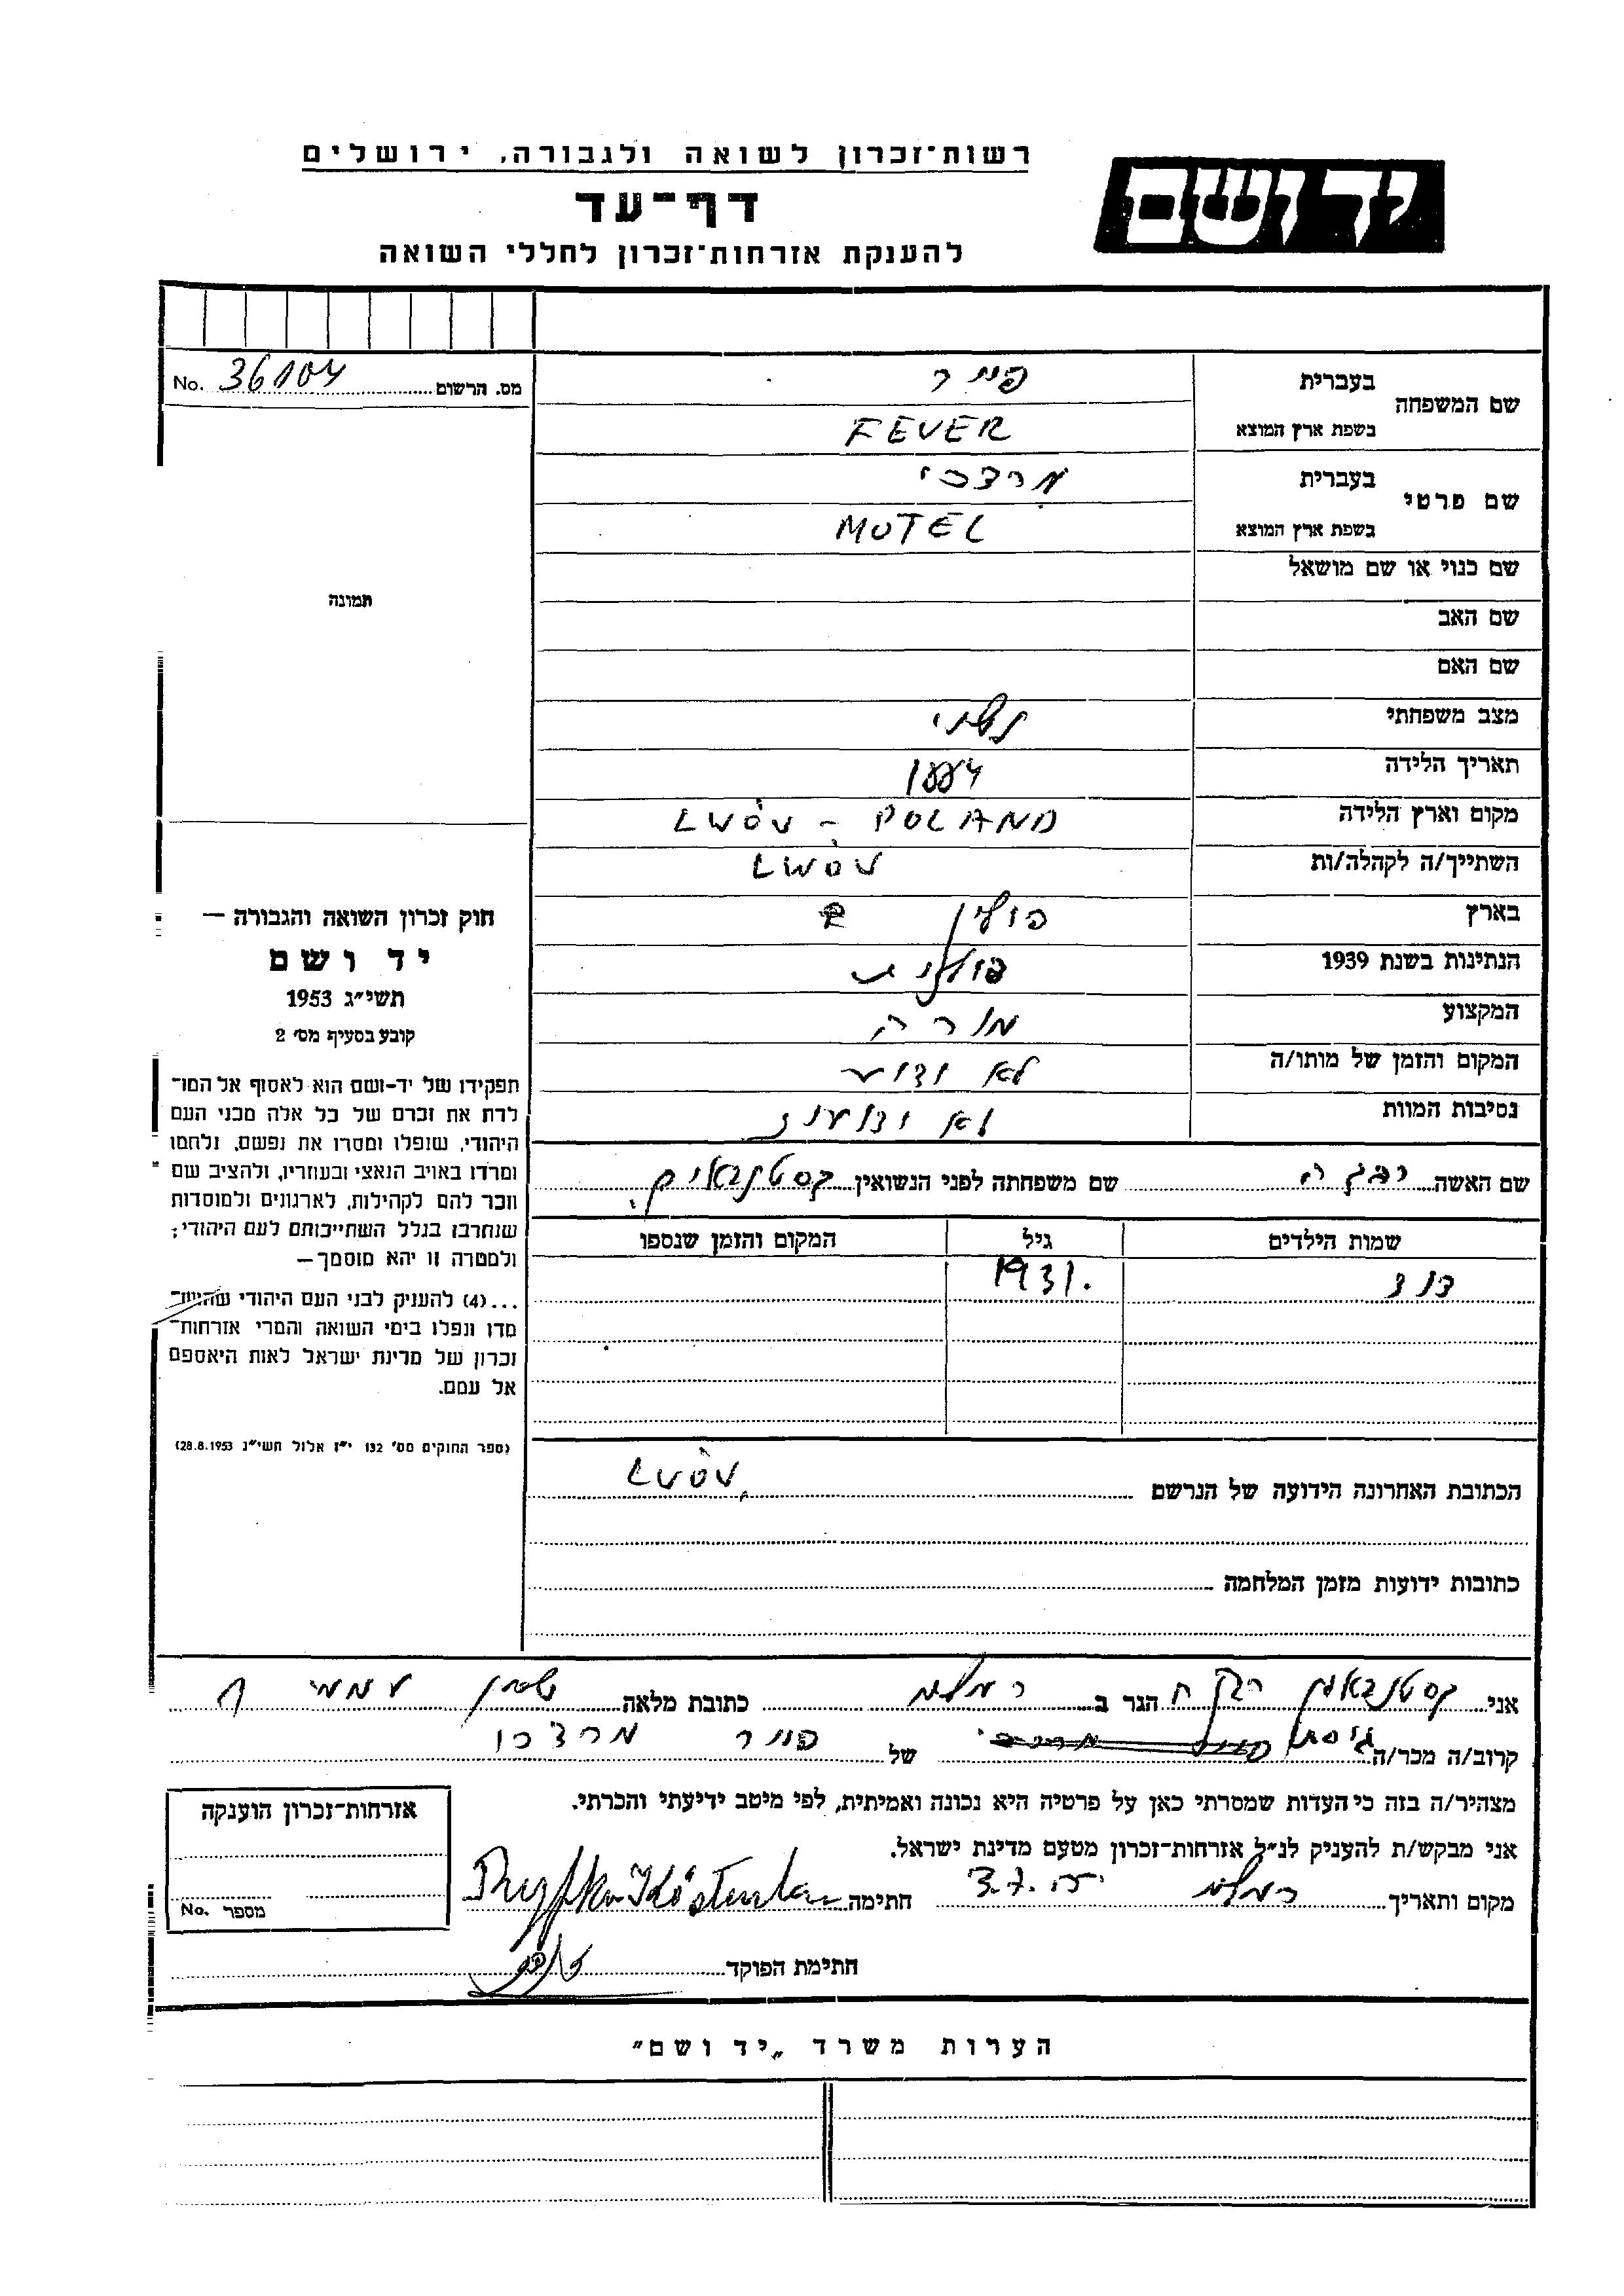 יד ושם
רשות־זכרון לשואה ולגבורה, ירושלים
דף־עד
להענקת אזרחות־זכרון לחללי השואה
מס. הרשום 36104 No.
שם המשפחה בעברית פייר
בשפת ארץ המוצא FEVER
שם פרטי בעברית מרדכי
בשפת ארץ המוצא MOTEL
שם כנוי או שם מושאל
שם האב
שם האם
מצב משפחתי נשוי
תאריך הלידה 1884
מקום וארץ הלידה LWÓV - POLAND
השתייך/ה לקהלה/ות LWÓV
בארץ פולין
הנתינות בשנת 1939 פולנית
המקצוע מורה
המקום והזמן של מותו/ה לא ידוע
נסיבות המוות לא ידועות
שם האשה שם משפחתה לפני הנשואין קסטנבאום
שמות הילדים גיל המקום והזמן שנספו
דוד 1931.
הכתובת האחרונה הידועה של הנרשם LWÓV
כתובות ידועות מזמן המלחמה
תמונה
חוק זכרון השואה והגבורה —
יד ושם
תשי״ג 1953
קובע בסעיף מס׳ 2
תפקידו של יד-ושם הוא לאסוף אל המו־
לדת את זכרם של כל אלה מבני העם
היהודי, שנפלו ומסרו את נפשם, נלחמו
ומרדו באויב הנאצי ובעוזריו, ולהציב שם
וזכר להם לקהילות, לארגונים ולמוסדות
שנחרבו בגלל השתייכותם לעם היהודי;
ולמטרה זו יהא מוסמך—
...(4) להעניק לבני העם היהודי שהוש־
מדו ונפלו בימי השואה והמרי אזרחות־
זכרון של מדינת ישראל לאות היאספם
אל עמם.
(ספר החוקים מס׳ 132 י״ז אלול תשי״ג 28.8.1953)
אני קסטנבאום רבקה הגר ב רמלה כתובת מלאה שכון עממי
קרוב/ה מכר/ה גיסתו של פייר מרדכי
מצהיר/ה בזה כי העדות שמסרתי כאן על פרטיה היא נכונה ואמיתית, לפי מיטב ידיעתי והכרתי.
אני מבקש/ת להעניק לנ״ל אזרחות־זכרון מטעם מדינת ישראל.
מקום ותאריך רמלה 3.7.55 חתימה
חתימת הפוקד
אזרחות־זכרון הוענקה
מספר No.
הערות משרד „יד ושם״